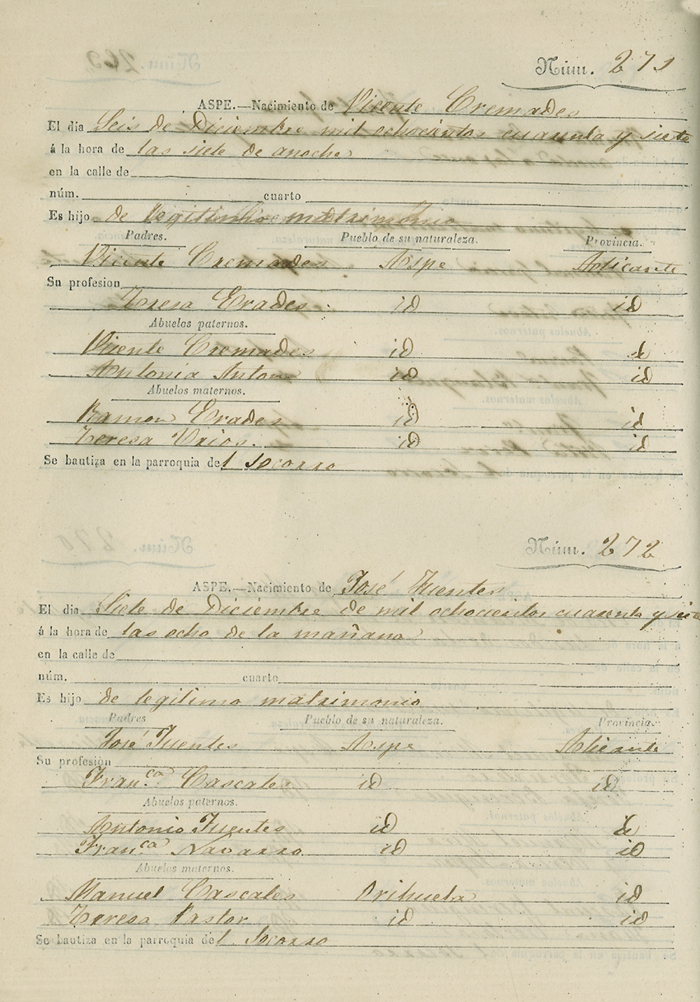 Núm. 271
ASPE.—Nacimiento de Vicente Cremades
El dia Seis de Diciembre mil ochocientos cuarenta y siete
á la hora de las siete de anoche
en la calle de
núm. cuarto
Es hijo de legitimo matrimonio
Padres. Pueblo de su naturaleza. Provincia.
Vicente Cremades Aspe Alicante
Su profesion
Teresa Erades id id
Abuelos paternos.
Vicente Cremades id id
Antonia Anton id id
Abuelos maternos.
Ramon Erades id id
Teresa Urios. id id
Se bautiza en la parroquia del Socorro
Núm. 272
ASPE.—Nacimiento de José Fuentes
El dia Siete de Diciembre de mil ochocientos cuarenta y siete
á la hora de las ocho de la mañana
en la calle de
núm. cuarto
Es hijo de legitimo matrimonio
Padres Pueblo de su naturaleza. Provincia.
José Fuentes Aspe Alicante
Su profesion
Fran.ca Cascales id id
Abuelos paternos.
Antonio Fuentes id id
Fran.ca Navarro id id
Abuelos maternos.
Manuel Cascales Orihuela id
Teresa Pastor id id
Se bautiza en la parroquia del Socorro